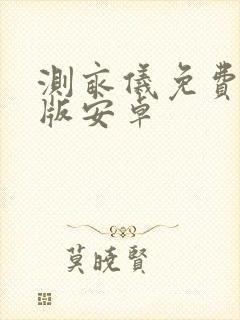 測儀免費
版安卓
莫曉賢